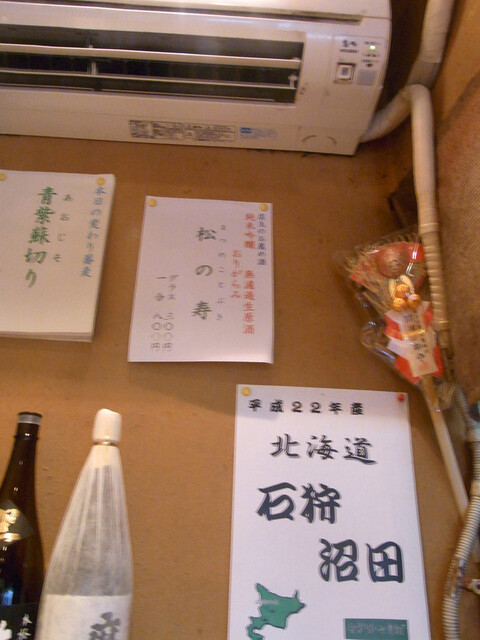 本日の変わり蕎麦
あおじそ
青葉蘇切り
純米吟醸 無濾過生原酒
おりがらみ
まつのことぶき
松の寿
グラス 三〇〇円
一合 八〇〇円
平成22年産
北海道
石狩
沼田